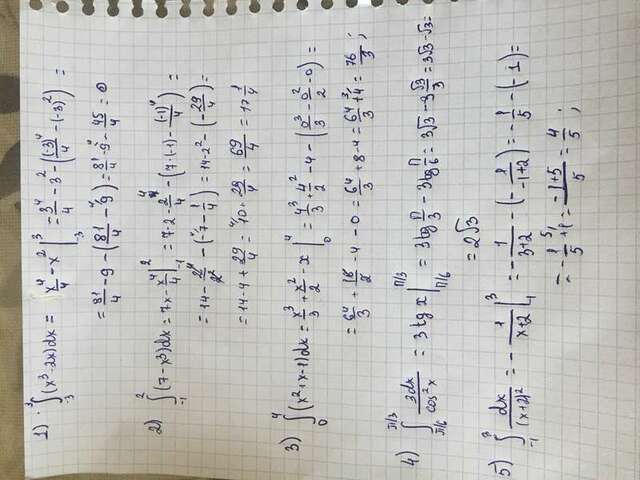 1) ∫₋₃³ (x³-2x)dx = x⁴/4 - x² |₋₃³ = 3⁴/4 - 3² - ((-3)⁴/4 - (-3)²) =
= 81/4 - 9 - (81/4 - 9) = 81/4 - 9 - 45/4 = 0
2) ∫₋₁² (7-x³)dx = 7x - x⁴/4 |₋₁² = 7·2 - 2⁴/4 - (7·(-1) - (-1)⁴/4) =
= 14 - 2⁴/2² - (-7 - 1/4) = 14 - 2² - (-29/4) =
= 14 - 4 + 29/4 = 10 + 29/4 = 69/4 = 17 1/4
3) ∫₀⁴ (x²+x-1)dx = x³/3 + x²/2 - x |₀⁴ = 4³/3 + 4²/2 - 4 - (0³/3 - 0²/2 - 0) =
= 64/3 + 16/2 - 4 - 0 = 64/3 + 8 - 4 = 64/3 + 4 = 76/3 ;
4) ∫π/6^π/3 3dx/cos²x = 3tg x |π/6^π/3 = 3tg π/3 - 3tg π/6 = 3√3 - 3 √3/3 = 3√3 - √3 =
= 2√3
5) ∫₋₁³ dx/(x+2)² = - 1/(x+2) |₋₁³ = - 1/(3+2) - (- 1/(-1+2)) = - 1/5 - (-1) =
= - 1/5 + 1 = (-1+5)/5 = 4/5 ;